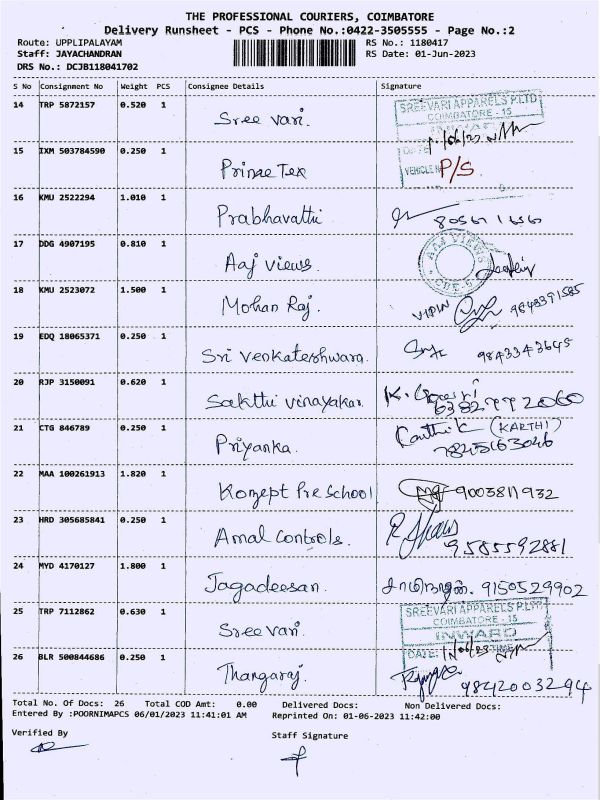 THE PROFESSIONAL COURIERS, COIMBATORE
Delivery Runsheet - PCS - Phone No.:0422-3505555 - Page No.:2
Route: UPPLIPALAYAM RS No.: 1180417
Staff: JAYACHANDRAN RS Date: 01-Jun-2023
DRS No.: DCJB118041702
S No Consignment No Weight PCS Consignee Details Signature
14 TRP 5872157 0.520 1 Sree vari. SREEVARI APPARELS P.LTD
COIMBATORE - 15
15 IXM 503784590 0.250 1 Prime Tex VEHICLE N P/S.
16 KMU 2522294 1.010 1 Prabhavathi
17 DDG 4907195 0.810 1 Aaj views. AAJ VIEWS
18 KMU 2523072 1.500 1 Mohan Raj. VIPIN 9843391585
19 EDQ 18065371 0.250 1 Sri Venkateshwara. 9843343645
20 RJP 3150091 0.620 1 Sakthi vinayakar. K. 6382772060
21 CTG 846789 0.250 1 Priyanka. Karthik (KARTHI)
7845163046
22 MAA 100261913 1.820 1 Konzept Pre School 9003811932
23 HRD 305685841 0.250 1 Amal Controls. 9585592881
24 MYD 4170127 1.800 1 Jagadeesan. 9150529902
25 TRP 7112862 0.630 1 Sree vari. SREEVARI APPARELS P.LTD
COIMBATORE - 15
INWARD
DATE: TIME
26 BLR 500844686 0.250 1 Thangaraj. 9842003294
Total No. Of Docs: 26 Total COD Amt: 0.00 Delivered Docs: Non Delivered Docs:
Entered By :POORNIMAPCS 06/01/2023 11:41:01 AM Reprinted On: 01-06-2023 11:42:00
Verified By Staff Signature